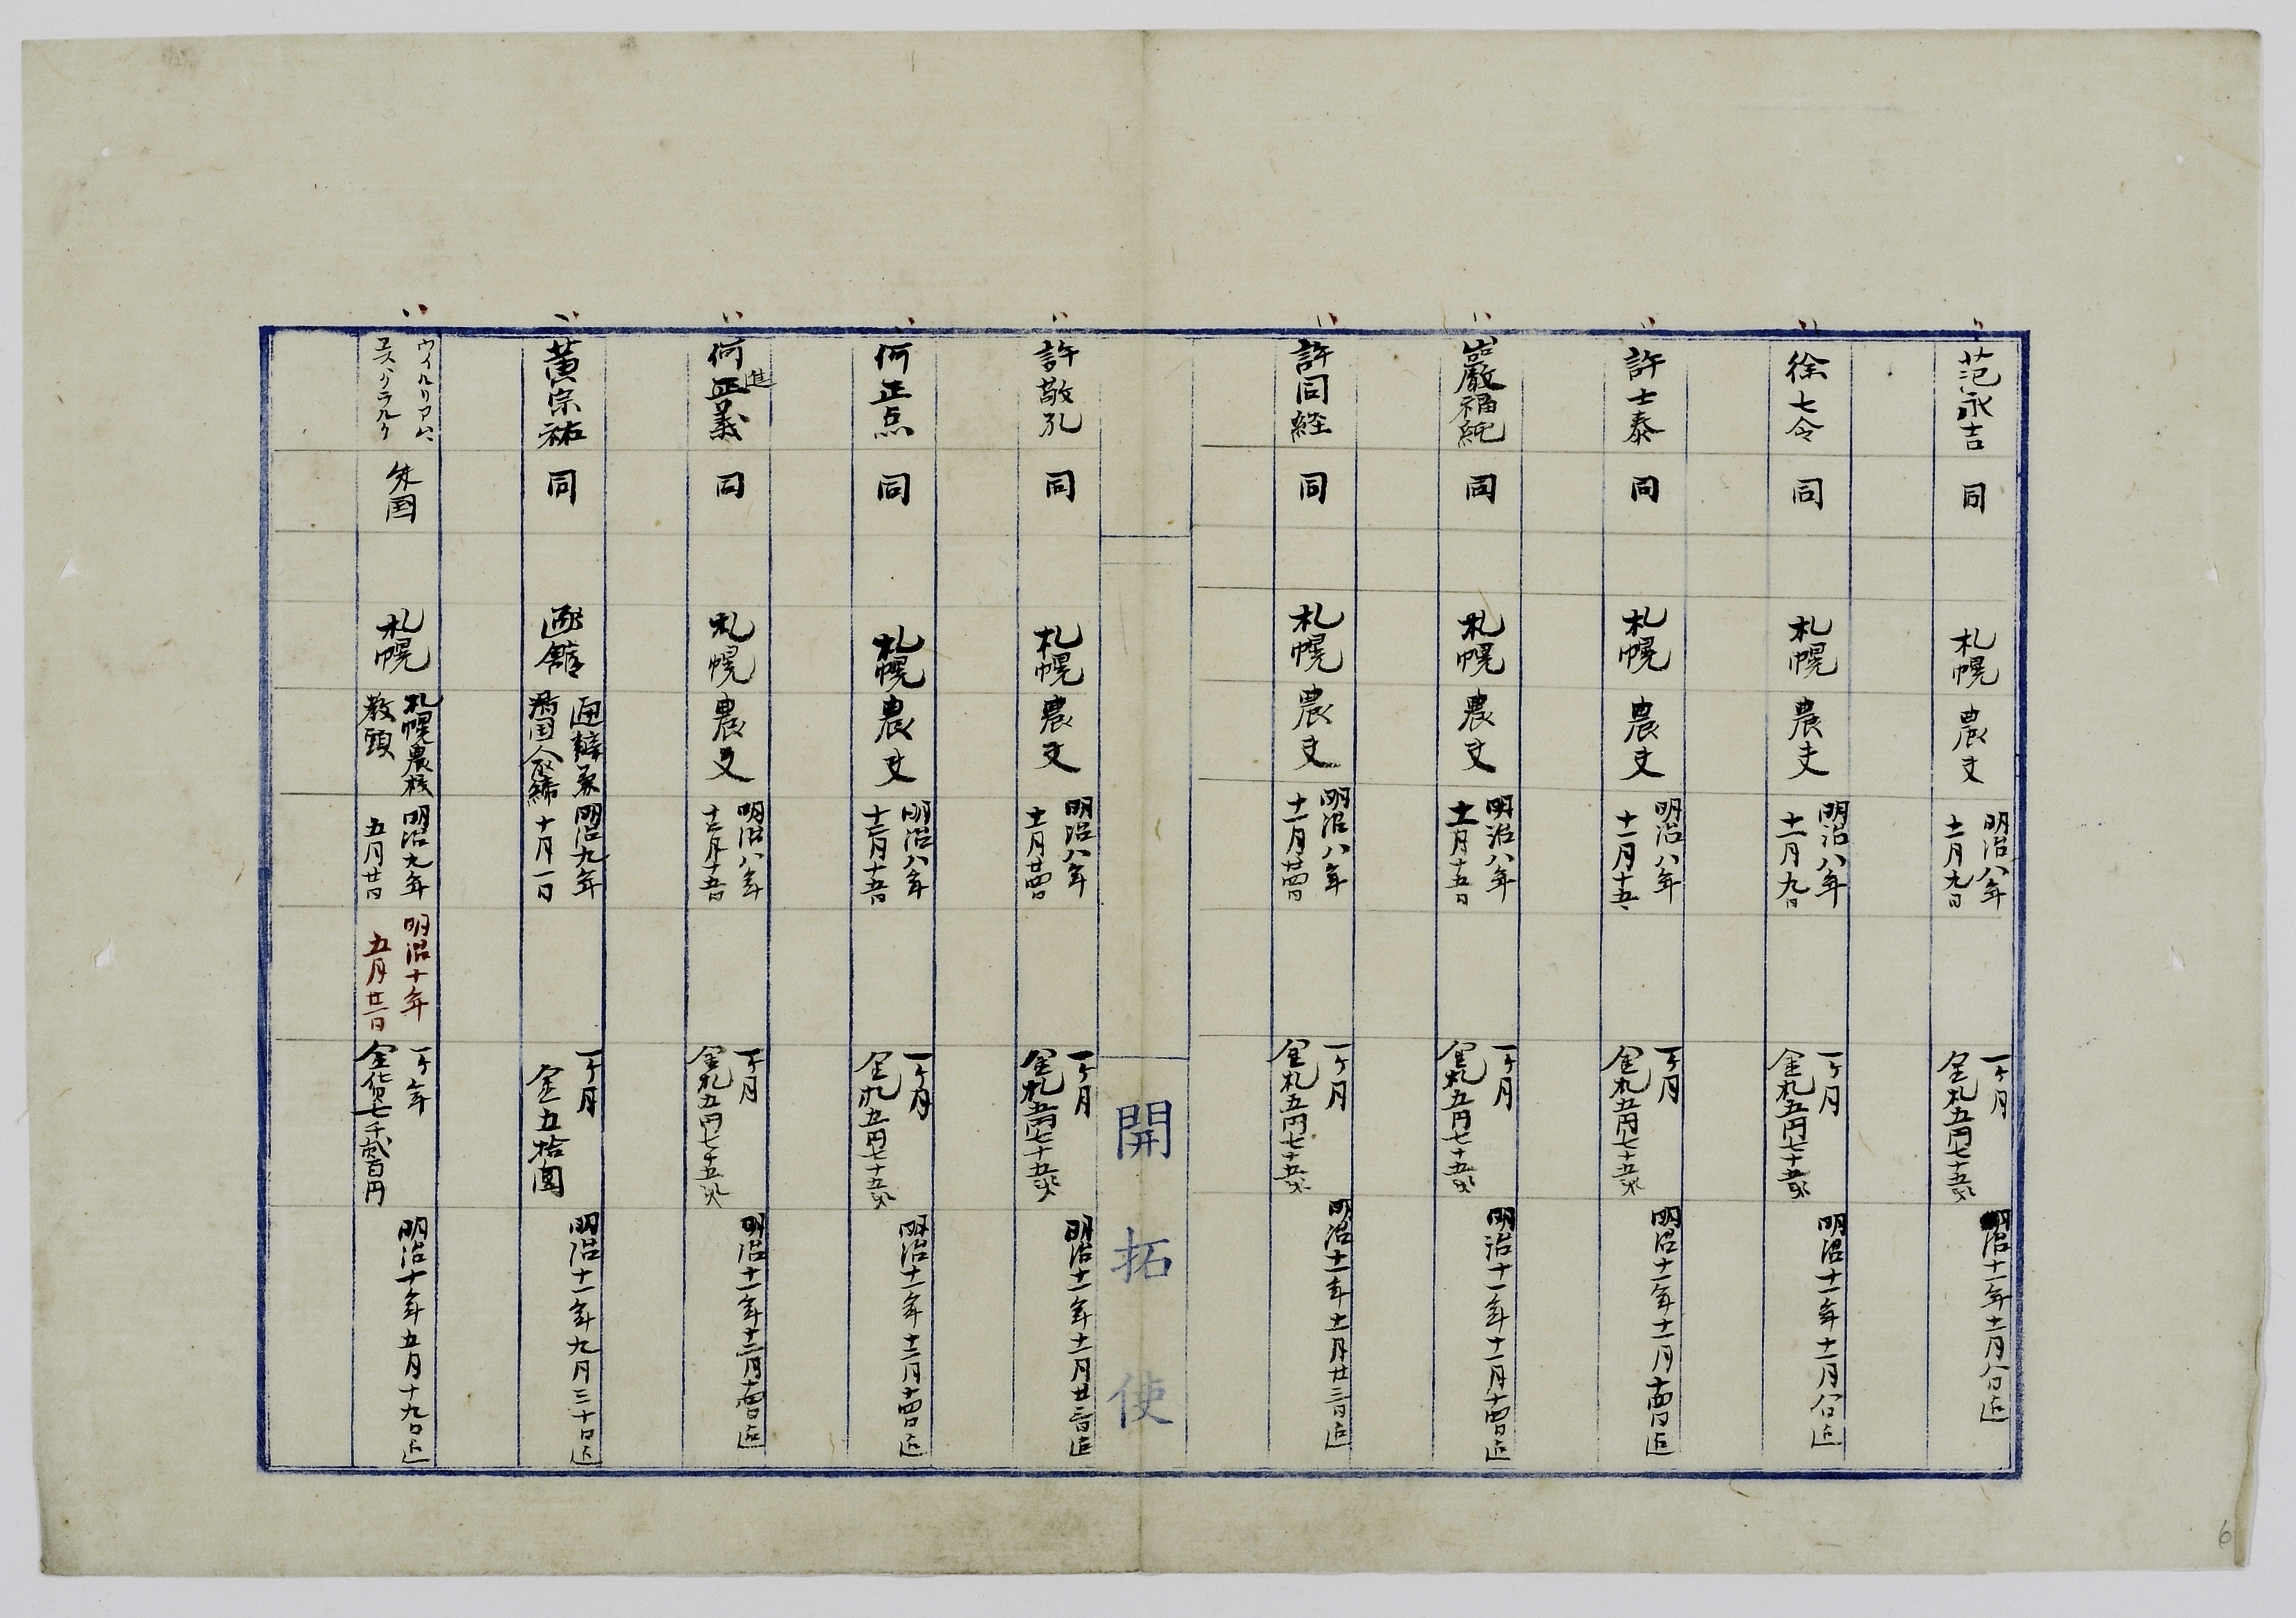 范永吉 同 札幌 農夫 明治八年十一月九日 一ケ月金札五円七十五銭 明治十一年十一月八日迄
徐七令 同 札幌 農夫 明治八年十一月九日 一ケ月金札五円七十五銭 明治十一年十一月八日迄
許士泰 同 札幌 農夫 明治八年十一月十五日 一ケ月金札五円七十五銭 明治十一年十一月十四日迄
巖福 同 札幌 農夫 明治八年十一月十五日 一ケ月金札五円七十五銭 明治十一年十一月十四日迄
許同経 同 札幌 農夫 明治八年十一月廿四日 一ケ月金札五円七十五銭 明治十一年十一月廿三日迄
開拓使
許敬孔 同 札幌 農夫 明治八年十一月廿四日 一ケ月金札五円七十五銭 明治十一年十一月廿三日迄
何正点 同 札幌 農夫 明治八年十二月十五日 一ケ月金札五円七十五銭 明治十一年十二月十四日迄
何正義 進 同 札幌 農夫 明治八年十二月十五日 一ケ月金札五円七十五銭 明治十一年十二月十四日迄
黄宗祐 同 函館 通辯兼清国人取締 明治九年十月一日 一ケ月金五拾圓 明治十一年九月三十日迄
ウイルリアム、エス、クラルク 米国 札幌 札幌農校教頭 明治九年五月廿日 明治十年五月廿一日 一ケ年金貨七千貳百円 明治十年五月十九日迄
6